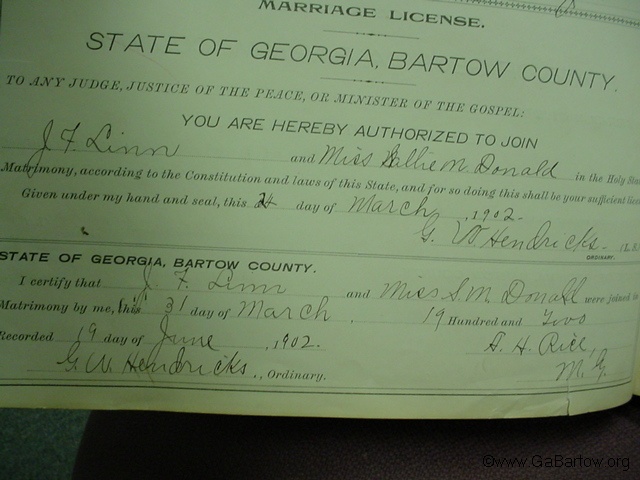 MARRIAGE LICENSE.
STATE OF GEORGIA, BARTOW COUNTY.
TO ANY JUDGE, JUSTICE OF THE PEACE, OR MINISTER OF THE GOSPEL:
YOU ARE HEREBY AUTHORIZED TO JOIN
J. F. Linn and Miss Sallie M Donald in the Holy
Matrimony, according to the Constitution and laws of this State, and for so doing this shall be your sufficient
Given under my hand and seal, this day of March, 1902.
G. W Hendricks.
ORDINARY.
STATE OF GEORGIA, BARTOW COUNTY.
I certify that J. F. Linn and Miss S. M Donald were joined in
Matrimony by me, this 31 day of March. 19 Hundred and Two
Recorded 19 day of June, 1902. A. H. Rice,
G. W. Hendricks., Ordinary. M. G.
©www.GaBartow.org